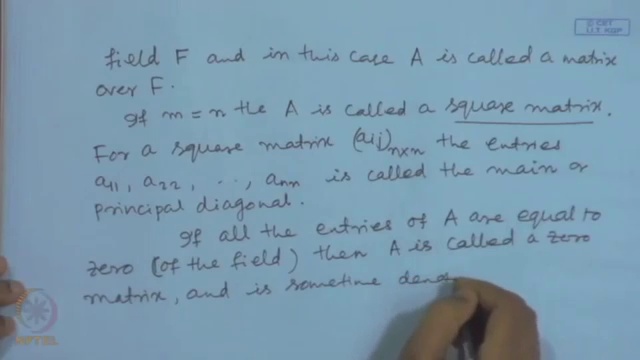 © CET
I.I.T. KGP
field F and in this case A is called a matrix
over F.
If m = n the A is called a square matrix.
For a square matrix (aij)n×n the entries
a11, a22, . . ., ann is called the main or
principal diagonal.
If all the entries of A are equal to
zero (of the field) then A is called a zero
matrix, and is sometime deno
NPTEL